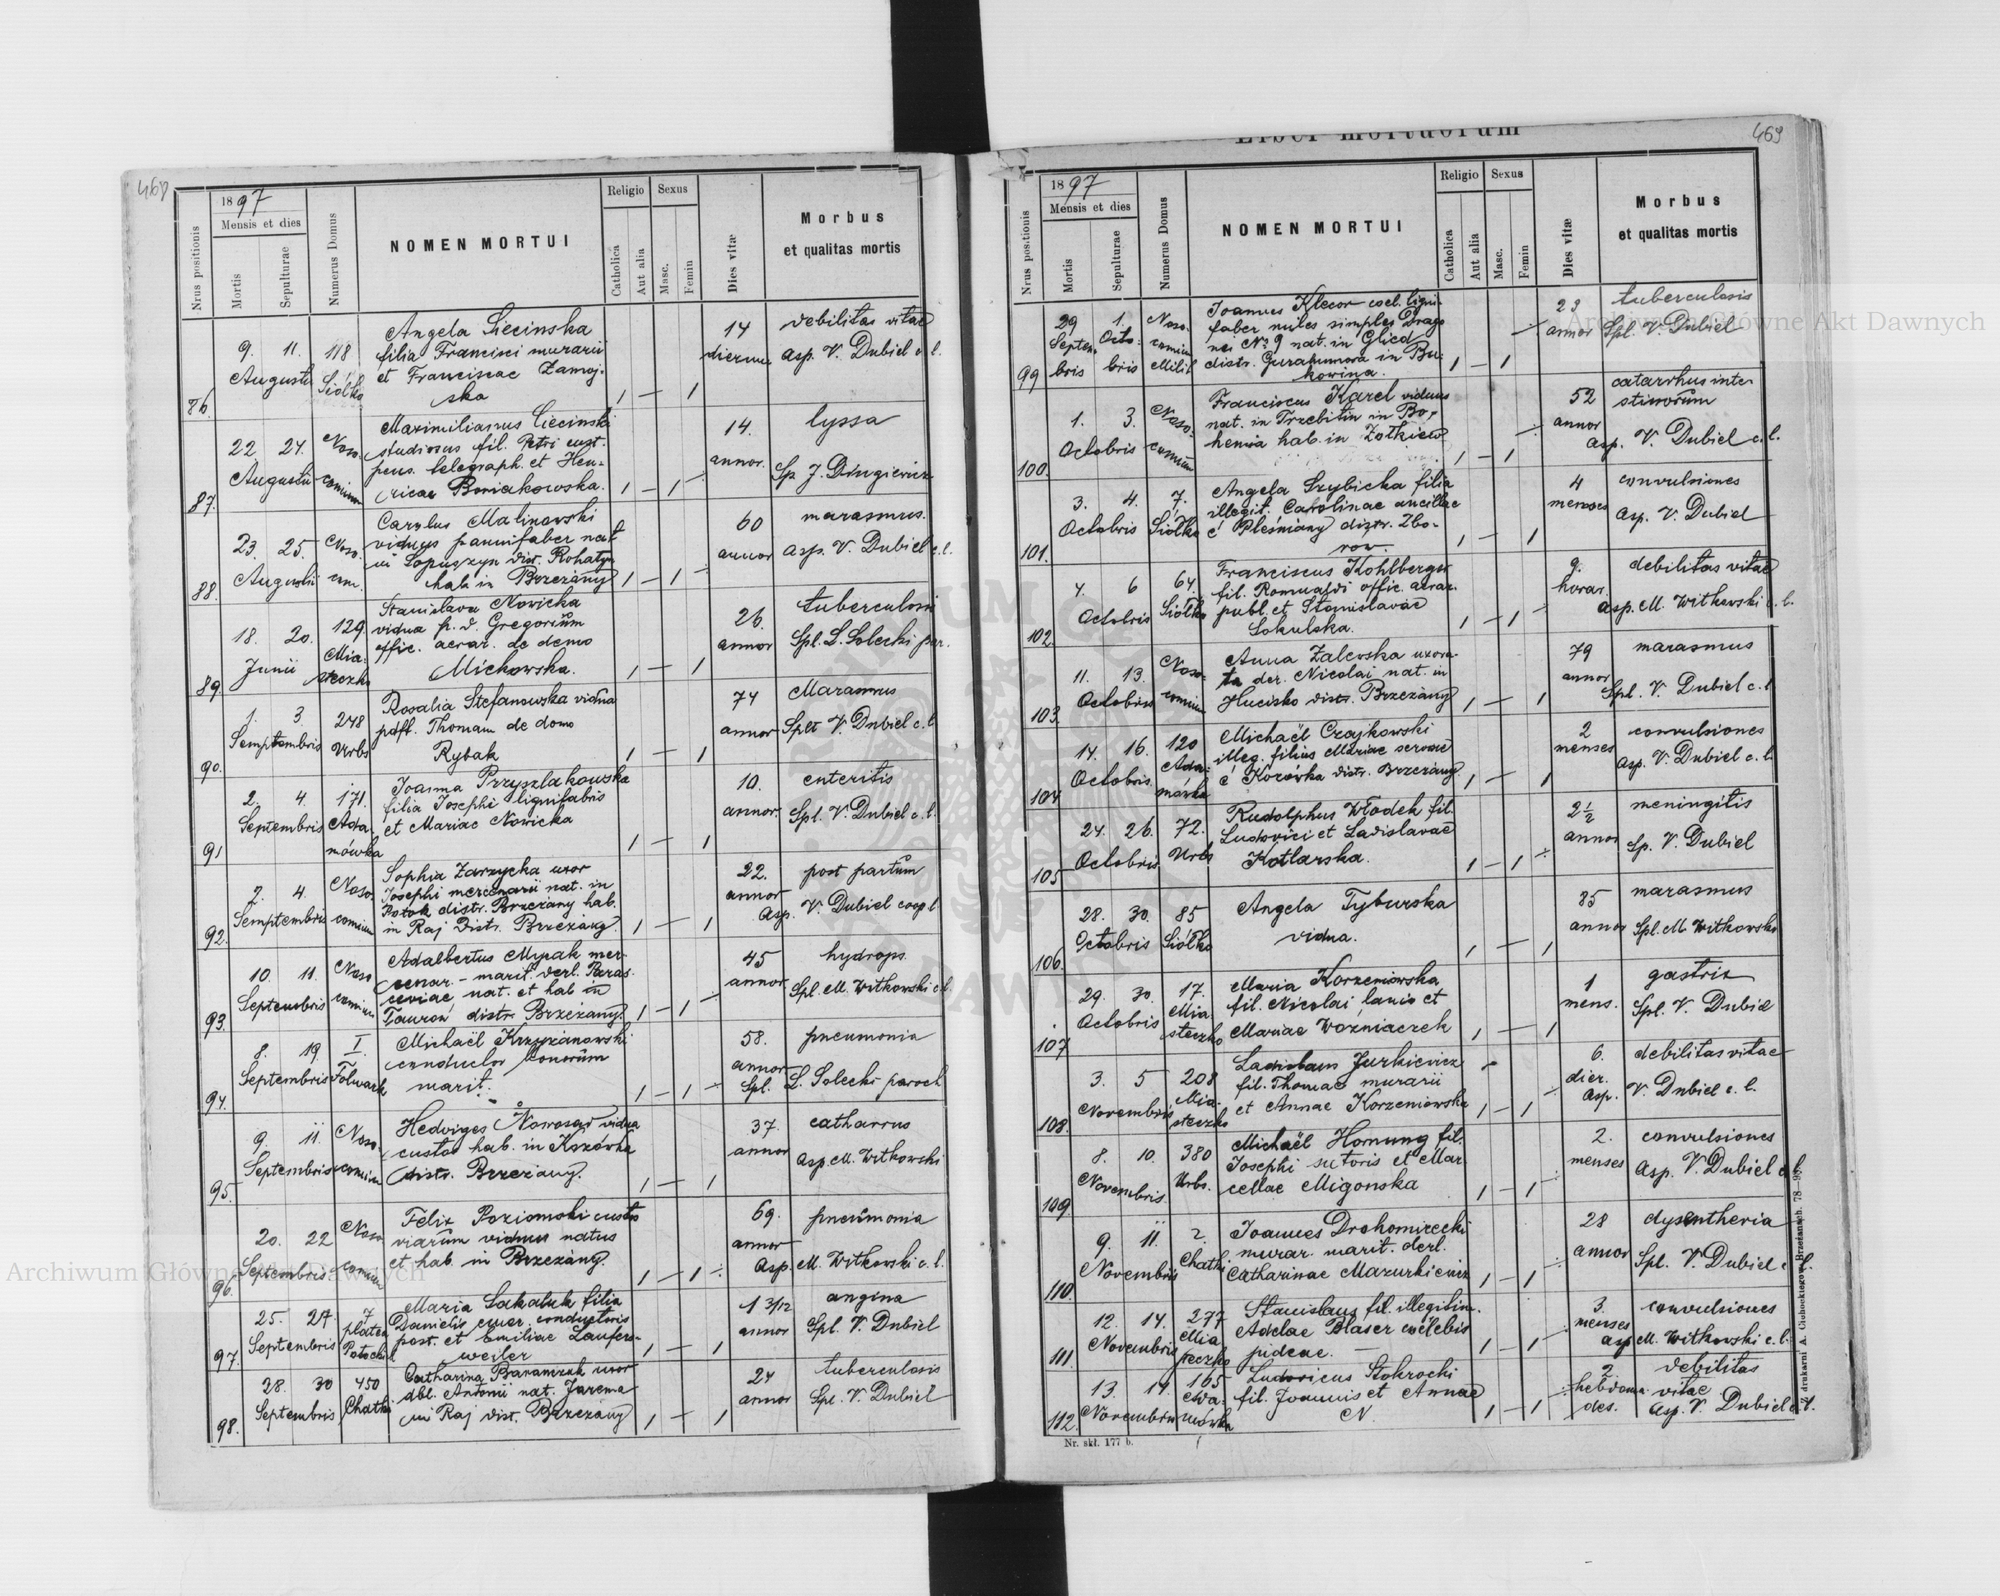 468
1897
Mensis et dies
Religio
Sexus
Nrus positionis
Mortis
Sepulturae
Numerus Domus
NOMEN MORTUI
Catholica
Aut alia
Masc.
Femin
Dies vitæ
Morbus
et qualitas mortis
86.
9. 11.
Augusti
118
Siółko
Angela Siecinska
filia Francisci murarii
et Franciscae Zamoj-
ska
1 — 1
14
dierum
debilitas vitae
asp. V. Dubiel c. l.
87.
22. 24.
Augusti
Noso-
comium
Maximilianus Ciecinski
studiosus fil. Petri
telegraph. et Hen-
ricae Boniakowska.
1 — 1
14.
annor.
lyssa
Sp. J.
88.
23. 25.
Augustii
Noso.
com.
Carolus Malinowski
viduus pannifaber nat
in Łopuszyn dist. Rohatyn
hab. in Brzeżany
1 — 1
60
annor
marasmus.
asp. V. Dubiel c. l.
89.
18. 20.
Junii
129
Mia-
steczko
Stanislava Nowicka
vidua p. d. Gregorium
offic. aerar. de domo
Mickowska.
1 — 1
26.
annor
tuberculosis
Spl. L. Solecki par.
90.
1. 3.
Semptembris
248
Urbs
Rosalia Stefanowska vidua
pdft. Thomam de domo
Rybak
1 — 1
74
annor
Marasmus
Splt V. Dubiel c. l.
91
2. 4.
Septembris
171.
Ada-
mówka
Joanna Przyszlakowska
filia Josephi lignifabris
et Mariae Nowicka
1 — 1
10.
annor.
enteritis
Spl. V. Dubiel c. l.
92.
2. 4.
Semptembris
Noso
comium
Sophia Zarzycka uxor
Josephi mercenarii nat. in
Potok distr. Brzeżany hab.
in Raj Distr. Brzeżany.
1 — 1
22.
annor
post partum
Asp. V. Dubiel coop l.
93.
10. 11.
Septembris
Noso
comium
Adalbertus Mypak mer-
cenar. – marit. derl. Paras-
ceviae, nat. et hab in
Taurów distr. Brzeżany.
1 — 1
45
annor
hydrops.
Spl. M. Witkowski c. l.
94.
8. 19.
Septembris
I.
Folwark
Michaël Krzyżanowski
conductor bonorum
marit.
1 — 1
58.
annor
pneumonia
Spl. L. Solecki paroch
95.
9. 11.
Septembris
Noso-
comium
Hedviges Nowosad vidua
custod hab. in Kozówka
distr. Brzeżany.
1 — 1
37.
annor
catharrus
Asp. M. Witkowski
96.
20. 22
Septembris
Noso
comium
Felix Poziomski custos
viarum viduus natus
et hab. in Brzeżany.
1 — 1
69.
annor
pneumonia
Asp. M. Witkowski c. l.
97.
25. 27
Septembris
7
platea
Potocki
Maria Sakaluk filia
Danielis emer. conductoris
post. et Emiliae Laufers-
weiler
1 — 1
1 3/12
annor
angina
Spl. V. Dubiel
98.
28. 30
Septembris
450
Chatki
Catharina Baramczuk uxor
dbl. Antonii nat. Jarema
in Raj dist. Brzeżany
1 — 1
24
annor
tuberculosis
Spl. V. Dubiel
Liber mortuorum
469
1897
Mensis et dies
Religio
Sexus
Nrus positionis
Mortis
Sepulturae
Numerus Domus
NOMEN MORTUI
Catholica
Aut alia
Masc.
Femin
Dies vitæ
Morbus
et qualitas mortis
99
29 1.
Septem- Octo-
bris bris
Noso-
comium
Milit
Joannes Klecor coel. ligni-
faber miles simplex Drago
nei No 9 nat. in
distr. Gurahumora in Bu-
kowina.
1 — 1
annor
tuberculosis
Spl. V. Dubiel
100.
1. 3.
Octobris
Noso-
comium
Franciscus Karel viduus
nat. in Trzebitin in Bo-
hemia hab. in Żółkiew
1 — 1
52
annor
catarrhus inte-
stinorum
asp. V. Dubiel c. l.
101.
3. 4.
Octobris
7.
Siółko
Angela Szybicka filia
illegit. Carolinae ancillae
é Pleśniany distr. Zbo-
row.
1 — 1
4
menses
convulsiones
Asp. V. Dubiel
102.
4. 6
Octobris
64.
Siółko
Franciscus Kohlberger
fil. Romualdi offic. aerar.
publ. et Stanislavae
Sokulska.
1 — 1
9.
horar.
debilitas vitae
asp. M. Witkowski c. l.
103.
11. 13.
Octobris
Noso-
comium
Anna Zalewska uxora-
ta der. Nicolai nat. in
Hucisko distr. Brzeżany
1 — 1
79
annor
marasmus
Spl. V. Dubiel c. l
104
14. 16.
Octobris.
120
Ada-
mówka
Michaël Czajkowski
illeg. filius Mariae servae
é Kozówka distr. Brzeżany.
1 — 1
2
menses
convulsiones
Asp. V. Dubiel c. l.
105
24. 26.
Octobris
72.
Urbs
Rudolphus Włodek fil.
Ludovici et Ladislavae
Kotlarska.
1 — 1
2 1/2
annor
meningitis
Sp. V. Dubiel
106.
28. 30.
Octobris
85
Siółko
Angela Tyburska
vidua.
1 — 1
85
annor
marasmus
Spl. M. Witkowski
107
29. 30.
Octobris
17.
Mia
steczko
Maria Korzeniowska
fil. Nicolai lanio et
Mariae Wozniaczek
1 — 1
1
mens.
gastris
Spl. V. Dubiel
108.
3. 5
Novembris
208
Mia-
steczko
Ladislaus Jurkiewicz
fil. Thomae murarii
et Annae Korzeniowska
1 — 1
6.
dier.
debilitas vitae
Asp. V. Dubiel c. l.
109.
8. 10.
Novembris
380
Urbs.
Michaël Hornung fil.
Josephi sutoris et Mar-
cellae Migonska
1 — 1
2.
menses
convulsiones
Asp. V. Dubiel c. l.
110.
9. 11.
Novembris
2.
Chatki
Joannes Drohomirecki
murar. marit. derl.
Catharinae Mazurkiewicz
1 — 1
28
annor
dysentheria
Spl. V. Dubiel c. l.
111.
12. 14.
Novembris
277
Mia
steczko
Stanislaus fil. illegitim.
Adelae Blaser coelebis
judeae.
1 — 1
3.
menses
convulsiones
asp M. Witkowski c. l.
112.
13. 14.
Novembris
165
Ada-
mówka
Ludovicus Stokrocki
fil. Joannis et Annae
N.
1 — 1
2
hebdoma-
des.
debilitas
vitae
Asp. V. Dubiel c. l.
Nr. skł. 177 b.
Z drukarni A. Głuchockiego w Brzeżanach. 78—95.
Archiwum Główne Akt Dawnych
Archiwum Główne Akt Dawnych